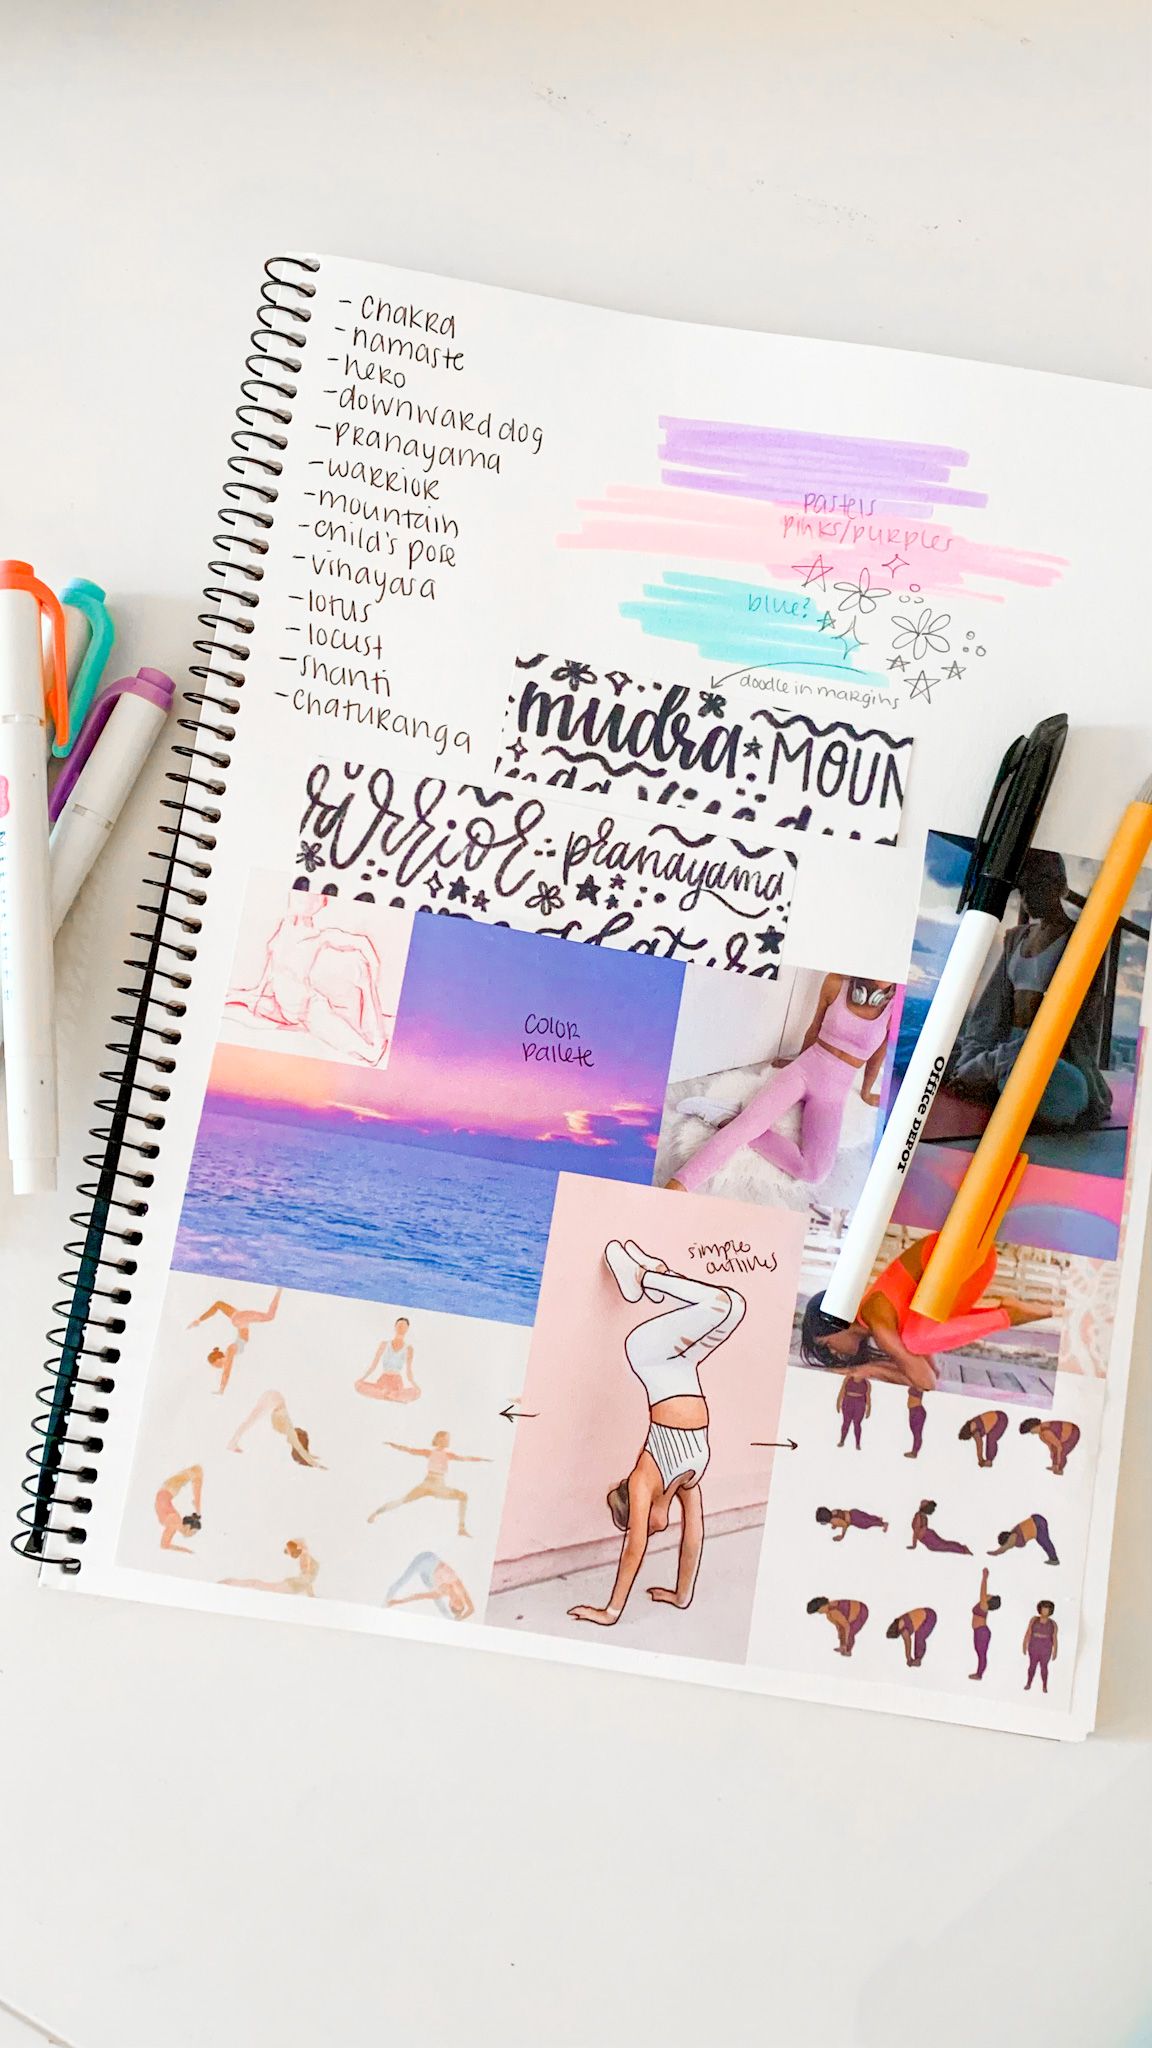 - Chakra
- namaste
- hero
- downward dog
- pranayama
- warrior
- mountain
- child's pose
- vinayasa
- lotus
- locust
- shanti
- Chaturanga
pastels
pinks/purples
blue?
doodle in margins
mudra MOUN
warrior pranayama
color
pallete
simple
outlines
Office DEPOT